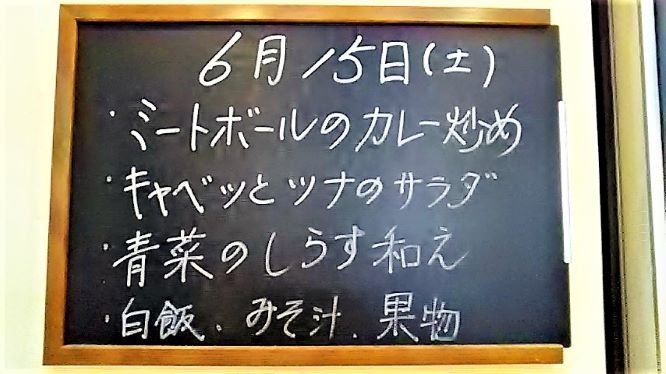 6月15日(土)
・ミートボールのカレー炒め
・キャベツとツナのサラダ
・青菜のしらす和え
・白飯、みそ汁、果物